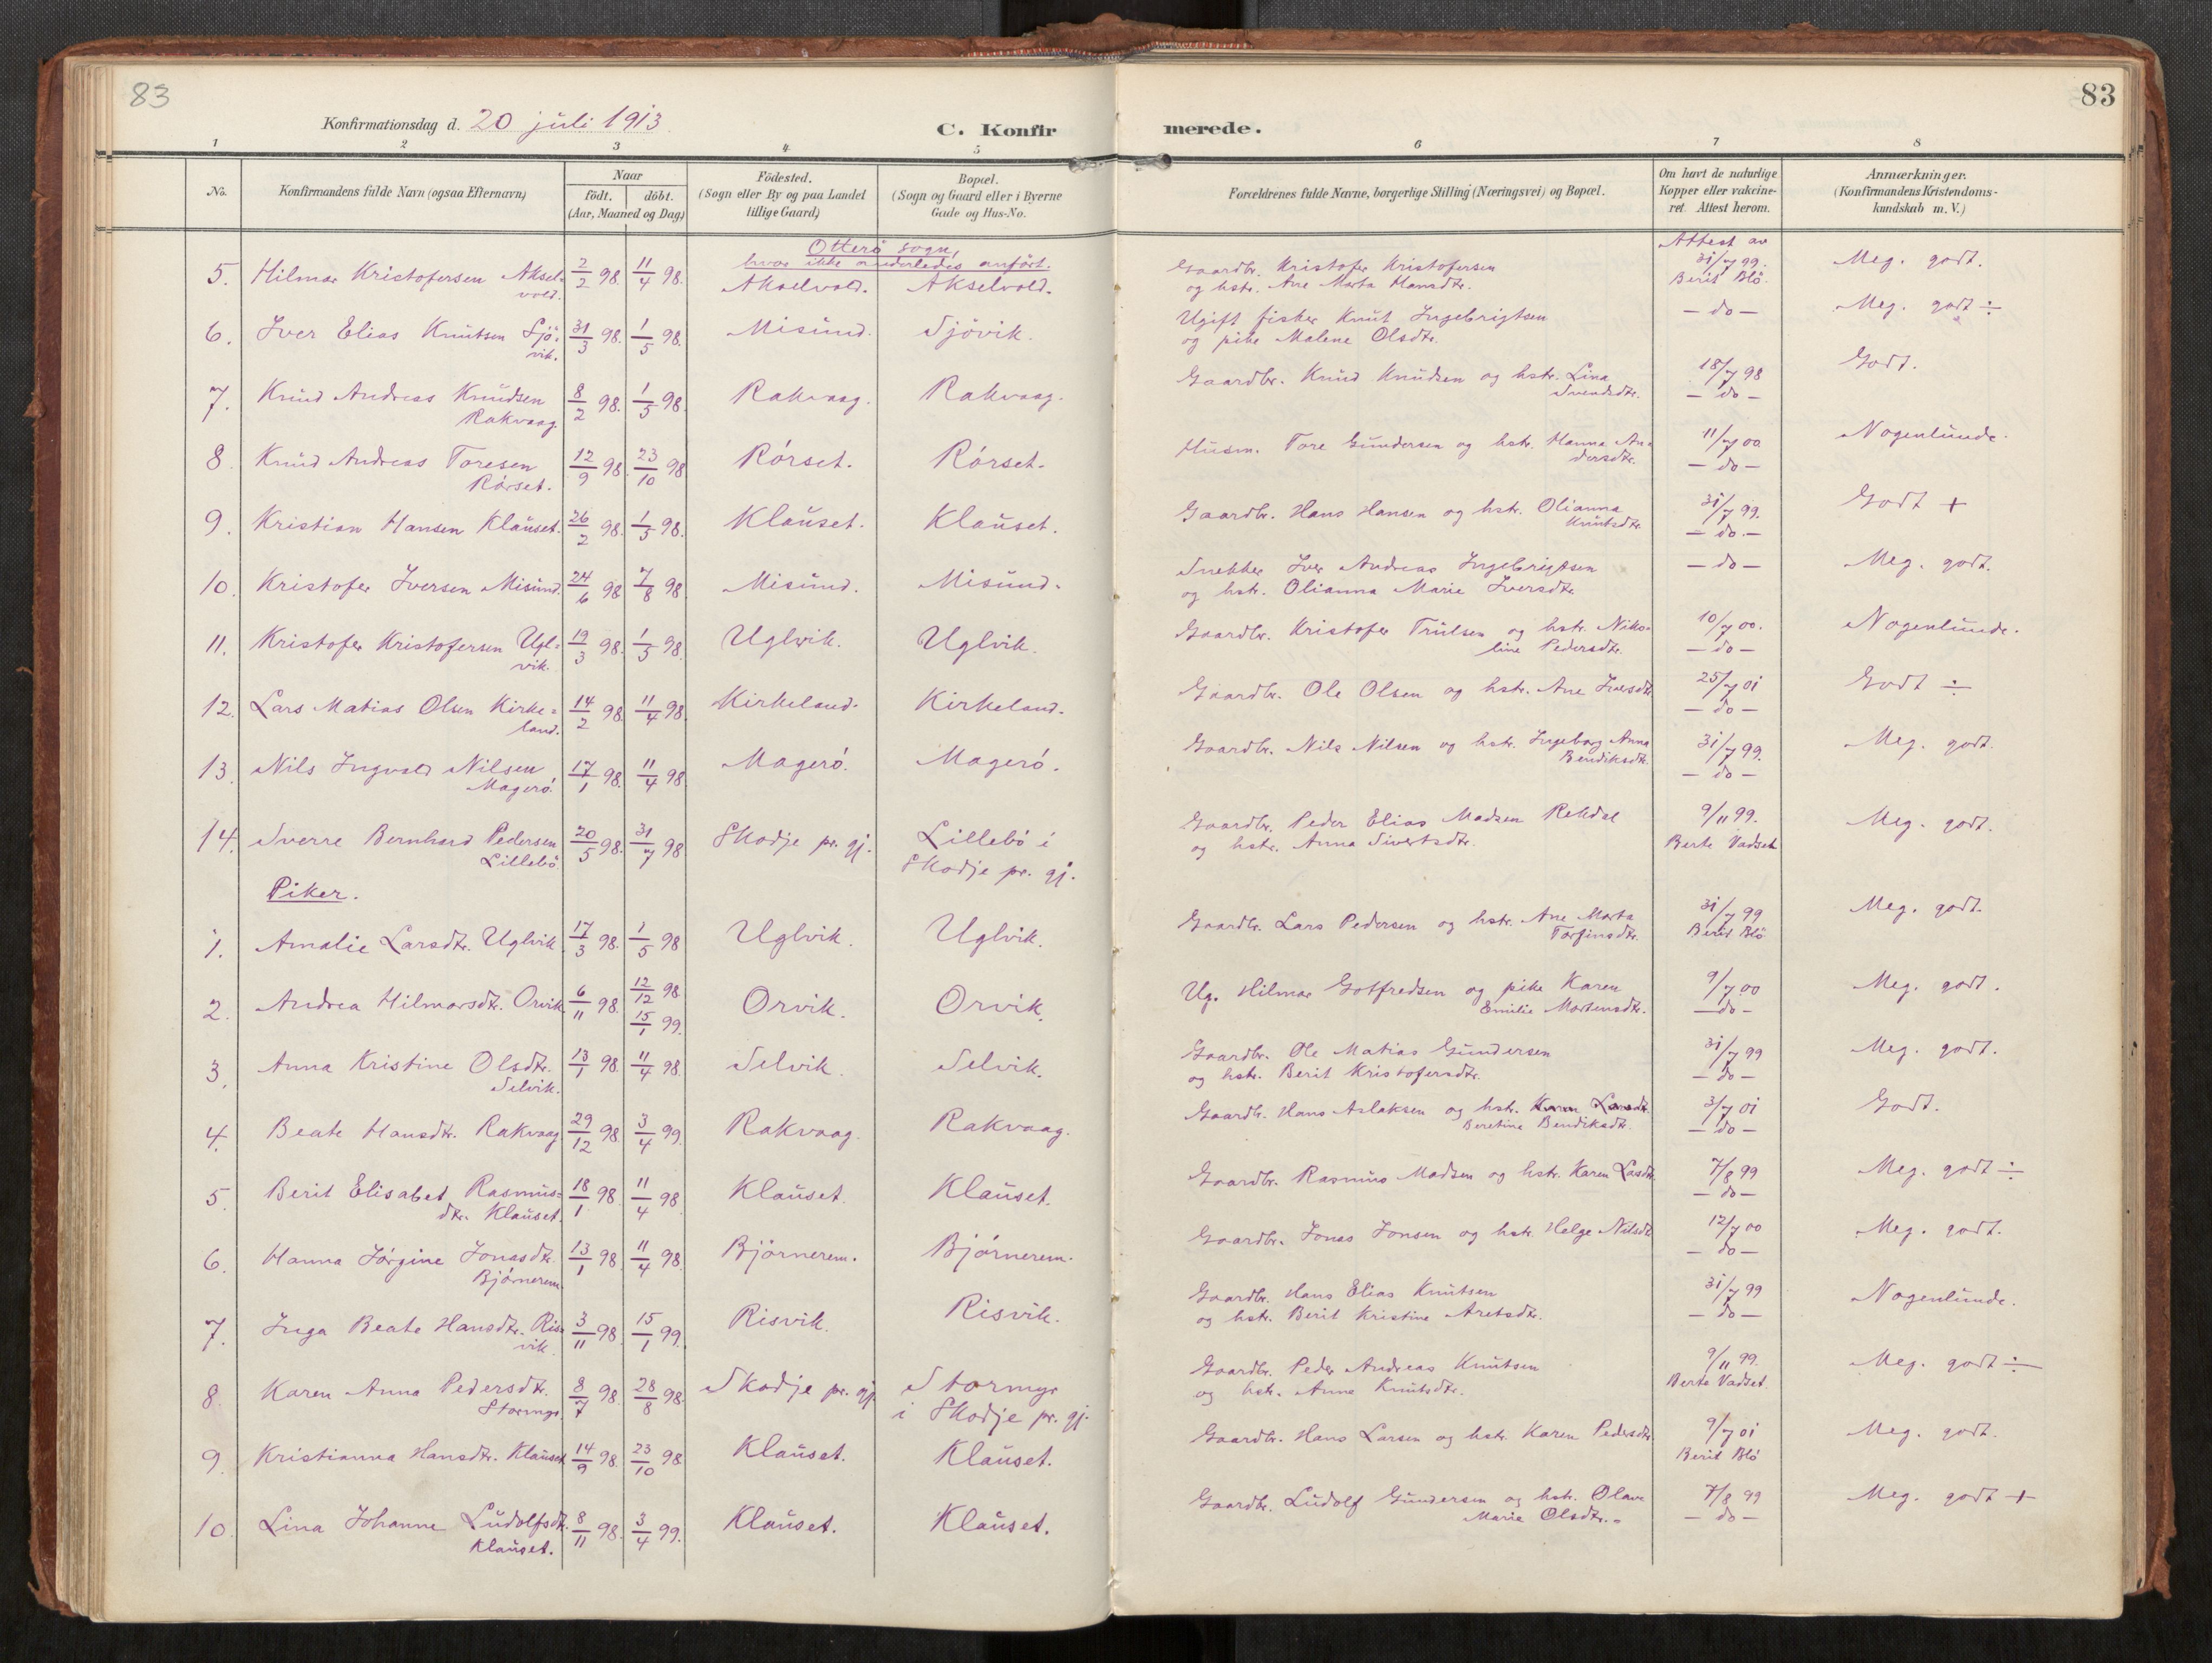 83
83
Konfirmationsdag d. 20 juli 1913.
C. Konfirmerede.
1 2 3 4 5 6 7 8
No.
Konfirmandens fulde Navn (ogsaa Efternavn)
Naar
födt. döbt.
(Aar, Maaned og Dag)
Födested.
(Sogn eller By og paa Landet
tillige Gaard)
Bopæl.
(Sogn og Gaard eller i Byerne
Gade og Hus-No.
Forældrenes fulde Navne, borgerlige Stilling (Næringsvei) og Bopæl.
Om havt de naturlige
Kopper eller vakcine-
ret. Attest herom.
Anmærkninger.
(Konfirmandens Kristendoms-
kundskab m. V.)
Otterö sogn,
hvor ikke anderledes anført.
5. Hilmar Kristofersen Aksel=
vold. 2/2 98. 11/4 98. Akselvold. Akselvold. Gaardbr. Kristofer Kristofersen
og hstr. Ane Marta Hansdtr. Attest av
31/7 99.
Berit Blö. Meg. godt.
6. Iver Elias Knutsen Sjö=
vik. 31/3 98. 1/5 98. Misund. Sjövik. Ugift fisker Knut Ingebrigtsen
og pike Malene Olsdtr. — do — Meg. godt ÷
7. Knud Andreas Knudsen
Rakvaag. 8/2 98. 1/5 98. Rakvaag. Rakvaag. Gaardbr. Knud Knudsen og hstr. Lina
Svendsdtr. 18/7 98
— do — Godt.
8. Knud Andreas Toresen
Rórset. 12/9 98. 23/10 98 Rórset. Rórset. Husm. Tore Gundersen og hstr. Hanna An=
dersdtr. 11/7 00
— do — Nogenlunde.
9. Kristian Hansen Klauset. 26/2 98. 1/5 98. Klauset. Klauset. Gaardbr. Hans Hansen og hstr. Olianna
Knutsdtr. 31/7 99.
— do — Godt +
10. Kristofer Iversen Misund. 24/6 98 7/8 98 Misund. Misund. Snekker Iver Andreas Ingebrigtsen
og hstr. Olianna Marie Iversdtr. — do — Meg. godt.
11. Kristofer Kristofersen Ugl=
vik. 19/3 98. 1/5 98. Uglvik. Uglvik. Gaardbr. Kristofer Trulsen og hstr. Niko=
line Pedersdtr. 10/7 00.
— do — Nogenlunde.
12. Lars Matias Olsen Kirke=
land. 14/2 98. 11/4 98. Kirkeland. Kirkeland. Gaardbr. Ole Olsen og hstr. Ane Iversdtr. 25/7 01
— do — Godt ÷
13. Nils Ingvald Nilsen
Magerö. 17/1 98. 11/4 98. Magerö. Magerö. Gaardbr. Nils Nilsen og hstr. Ingeborg Anna
Bendiksdtr. 31/7 99.
— do — Meg. godt.
14. Sverre Bernhard Pedersen
Lillebö. 20/5 98. 31/7 98. Skodje pr. gj. Lillebö i
Skodje pr. gj. Gaardbr. Peder Elias Madsen Rekdal
og hstr. Anna Sivertsdtr. 9/11 99.
Berte Vadset Meg. godt.
Piker.
1. Amalie Larsdtr. Uglvik 17/3 98. 1/5 98 Uglvik. Uglvik. Gaardbr. Lars Pedersen og hstr. Ane Marta
Torfinsdtr. 31/7 99
Berit Blö Meg. godt.
2. Andrea Hilmarsdtr. Orvik 6/11 98. 12/12 98.
15/1 99. Orvik. Orvik. Ug. Hilmar Gotfredsen og pike Karen
Emilie Mortensdtr. 9/7 00
— do — Meg. godt.
3. Anna Kristine Olsdtr.
Selvik. 13/1 98. 11/4 98. Selvik. Selvik. Gaardbr. Ole Matias Gundersen
og hstr. Berit Kristofersdtr. 31/7 99
— do — Meg. godt.
4. Beate Hansdtr. Rakvaag 29/12 98. 3/4 99. Rakvaag. Rakvaag. Gaardb. Hans Aslaksen og hstr. Karen Larsdtr.
Beretine Bendiksdtr. 3/7 01
— do — Godt.
5. Berit Elisabet Rasmus=
dtr. Klauset. 18/1 98. 11/4 98. Klauset. Klauset. Gaardbr. Rasmus Madsen og hstr. Karen Lasdtr. 7/8 99
— do — Meg. godt ÷
6. Hanna Jörgine Jonasdtr.
Bjórnerem 13/1 98. 11/4 98. Bjórnerem. Bjórnerem. Gaardbr. Jonas Jonsen og hstr. Helge Nilsdtr. 12/7 00
— do — Meg. godt.
7. Inga Beate Hansdtr. Ris=
vik. 3/11 98. 15/1 99. Risvik. Risvik. Gaardbr. Hans Elias Knutsen
og hstr. Berit Kristine Aretsdtr. 31/7 99
— do — Nogenlunde.
8. Karen Anna Pedersdtr.
Stormyr. 8/7 98. 28/8 98. Skodje pr. gj. Stormyr
i Skodje pr. gj. Gaardbr. Peder Andreas Knutsen
og hstr. Anne Knutsdtr. 9/11 99.
Berte Vadset. Meg. godt ÷
9. Kristianna Hansdtr. Klauset 14/9 98. 23/10 98 Klauset. Klauset. Gaardbr. Hans Larsen og hstr. Karen Pedersdtr. 9/7 01
Berit Blö Meg. godt.
10. Lina Johanne Ludolfsdtr.
Klauset. 8/11 98. 3/4 99. Klauset. Klauset. Gaardbr. Ludolf Gundersen og hstr. Olave
Marie Olsdtr. 7/8 99
— do — Meg. godt +